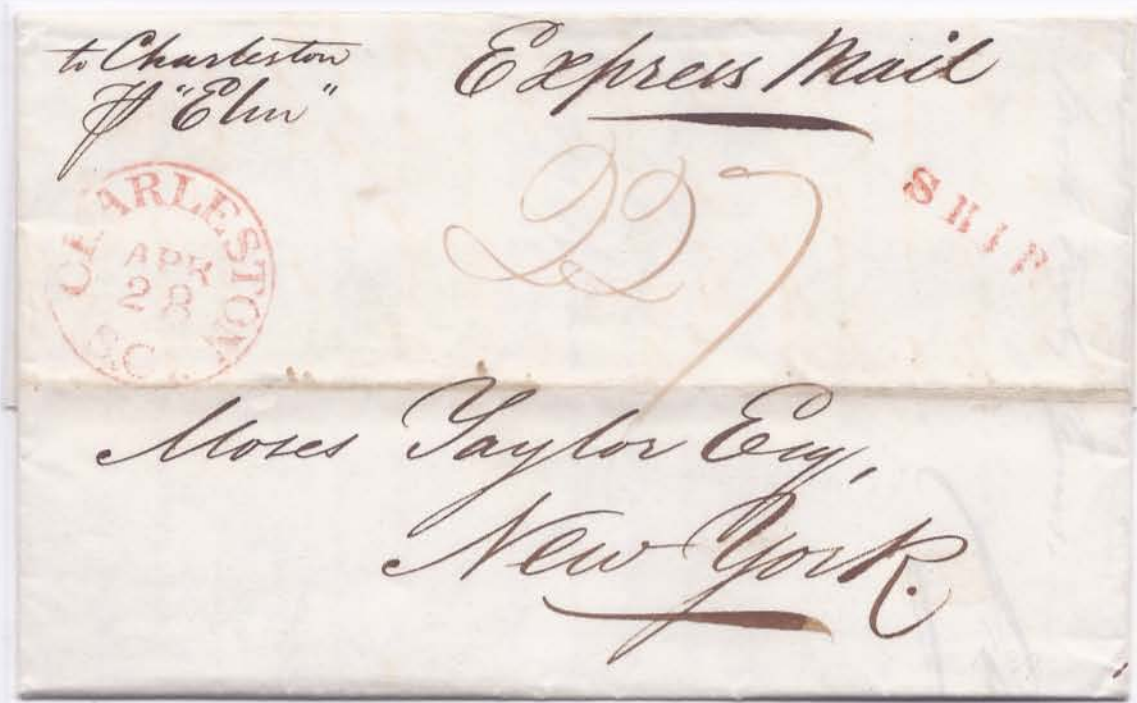 to Charleston
℔ "Elm"
Express Mail
CHARLESTON
APR
28
S.C.
227
SHIP
Moses Taylor Esq,
New York.